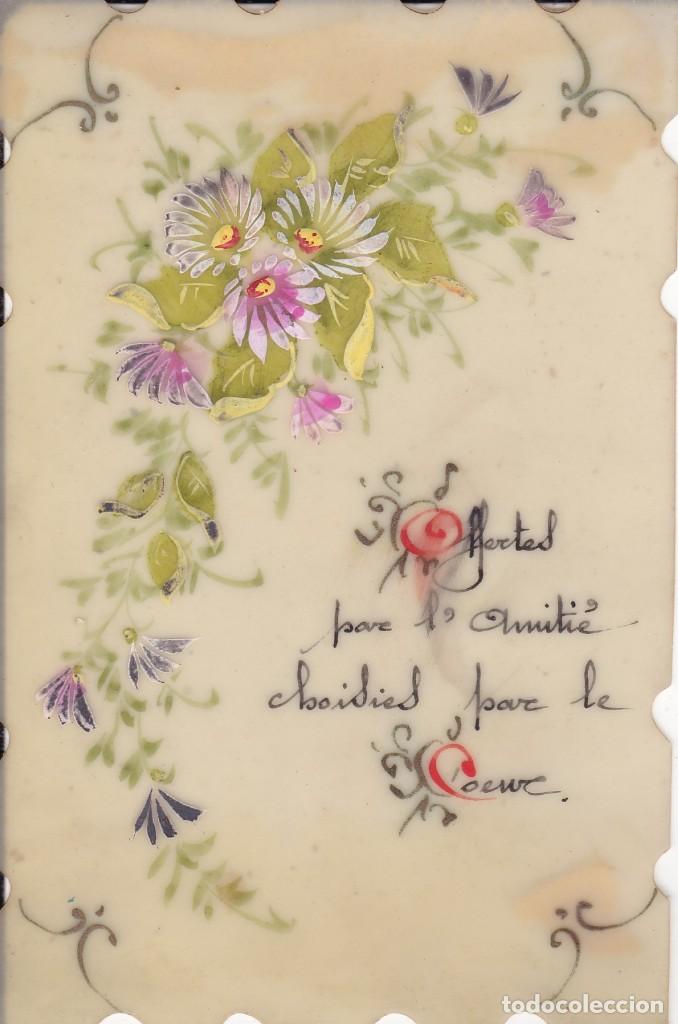 Offertes
par l'Amitié
choisies par le
Coeur.
todocoleccion